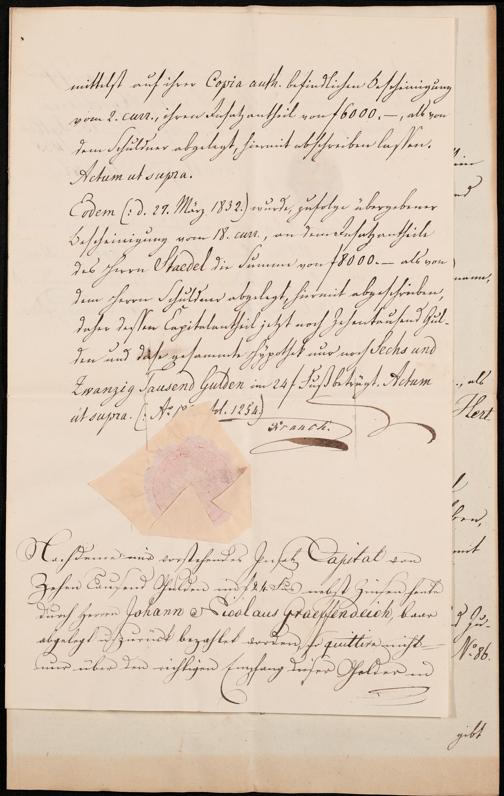 mittelst auf ihrer Copia auth. befindlichen Bescheinigung
vom 2. curr., ihren Insatzantheil von f 6000.—, als von
dem Schuldner abgelegt, hiermit abschreiben lassen.
Actum ut supra.
Eodem (: d. 27. März 1832.) wurde, zufolge übergebener
Bescheinigung vom 18. curr., an dem Insatzantheile
des Herrn Staedel die Summe von f 8000.— als von
dem Herrn Schuldner abgelegt, hiermit abgeschrieben,
daher dessen Capitalantheil jetzt noch Zehentausend Gul-
den und das gesammte Hypothek nur noch Sechs und
Zwanzig Tausend Gulden in 24 f. Fuß beträgt. Actum
ut supra. (: 1254.)
Nachdeme mir vorstehendes Insatz Capital von
Zehen Tausend Gulden im f 24 Fus nebst Zinsen heute
durch Herrn Johann Nicolaus Graeffendeich, baar
abgelegt u. zurück bezahlet worden, so quittire nicht
nur über den richtigen Empfang dieser Gelder in
nann,
., als
Herr
mit
No. 86.
gibt